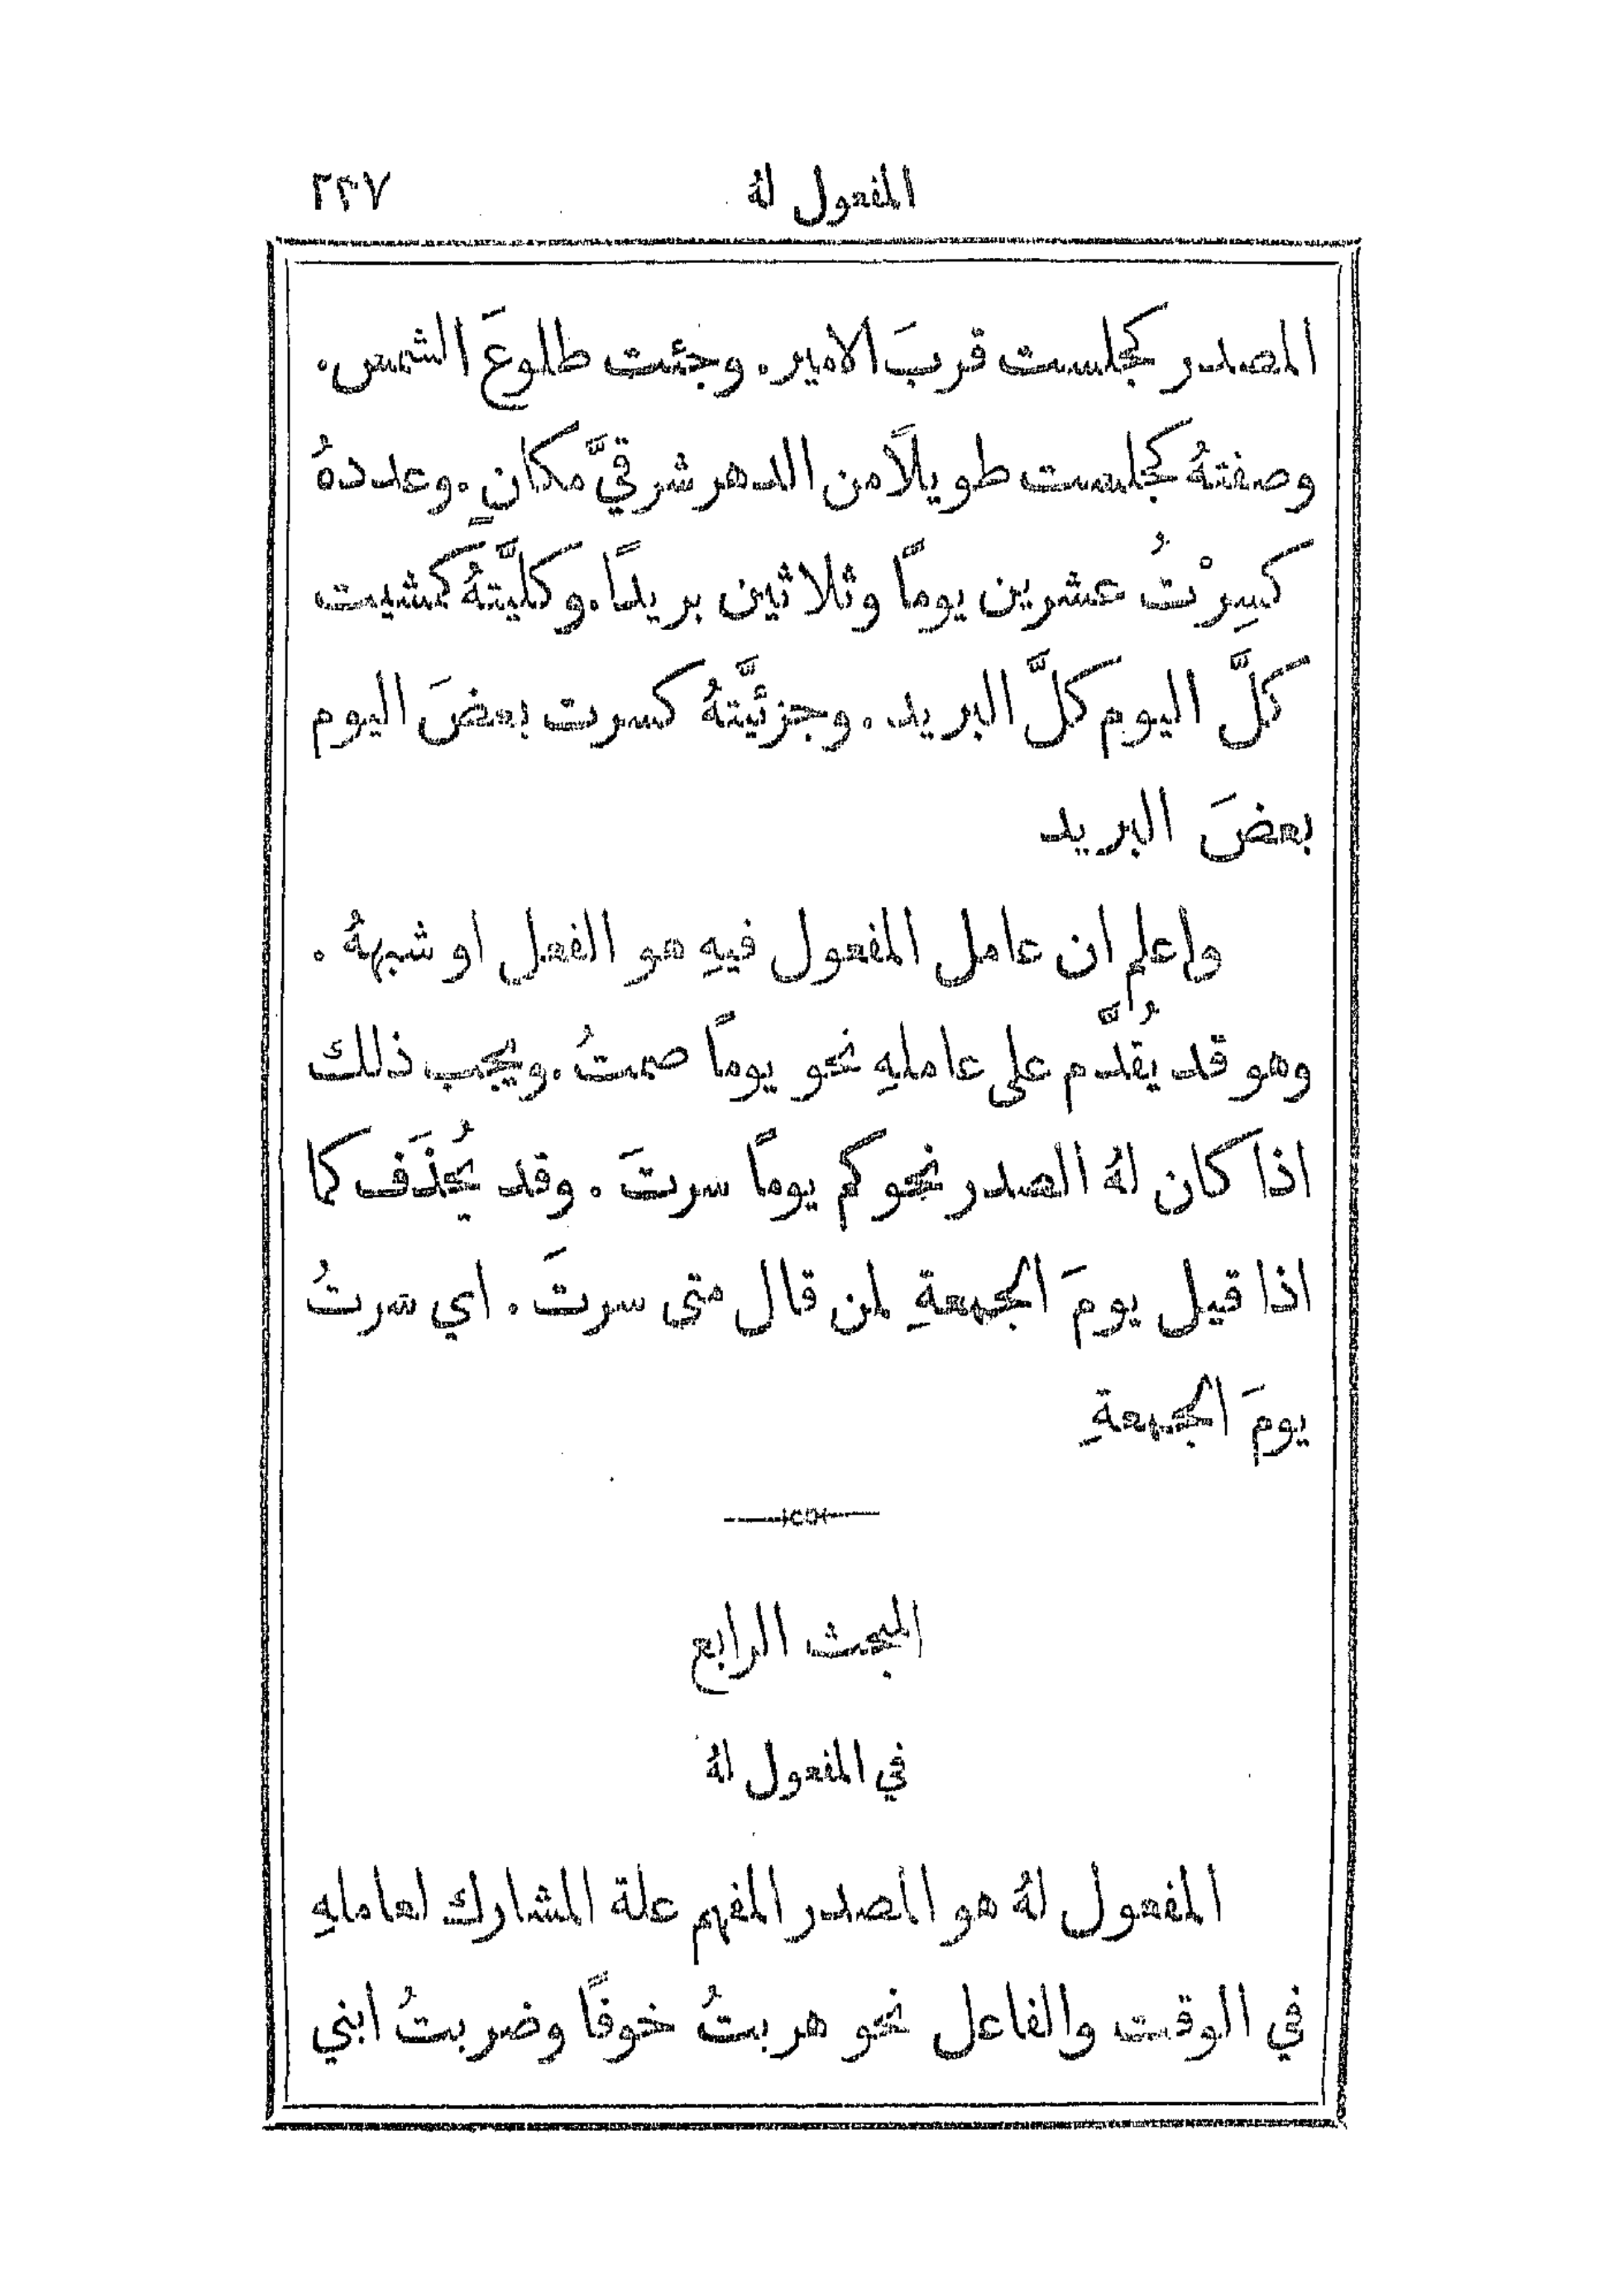 المفعول لهُ ٢٣٧
المصدر كجلست قربَ الامير. وجئت طلوعَ الشمس.
وصفتهُ كجلست طويلًا من الدهر شرقيَّ مكانٍ. وعددهُ
كسِرْتُ عشرين يومًا وثلاثين بريدًا. وكلّيَّتهُ كمشيت
كلَّ اليوم كلَّ البريد. وجزئيَّتهُ كسرت بعضَ اليوم
بعضَ البريد
واعلم ان عامل المفعول فيهِ هو الفعل او شبههُ.
وهو قد يُقدَّم على عاملهِ نحو يومًا صمتُ. ويجب ذلك
اذا كان لهُ الصدر نحو كم يومًا سرتَ. وقد يُحذَف كما
اذا قيل يومَ الجمعةِ لمن قال متى سرتَ. اي سرتُ
يومَ الجمعةِ
المبحث الرابع
في المفعول لهُ
المفعول لهُ هو المصدر المفهم علة المشارك لعاملهِ
في الوقت والفاعل نحو هربتُ خوفًا وضربتُ ابني